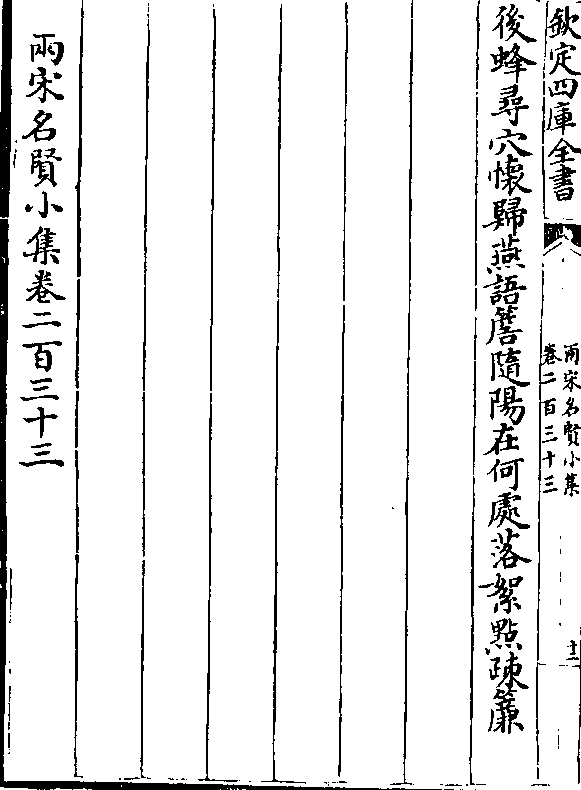 欽定四庫全書
兩宋名賢小集
卷二百三十三
十二
後蜂尋穴懷歸燕語簷隨陽在何處落絮點疎簾
兩宋名賢小集卷二百三十三